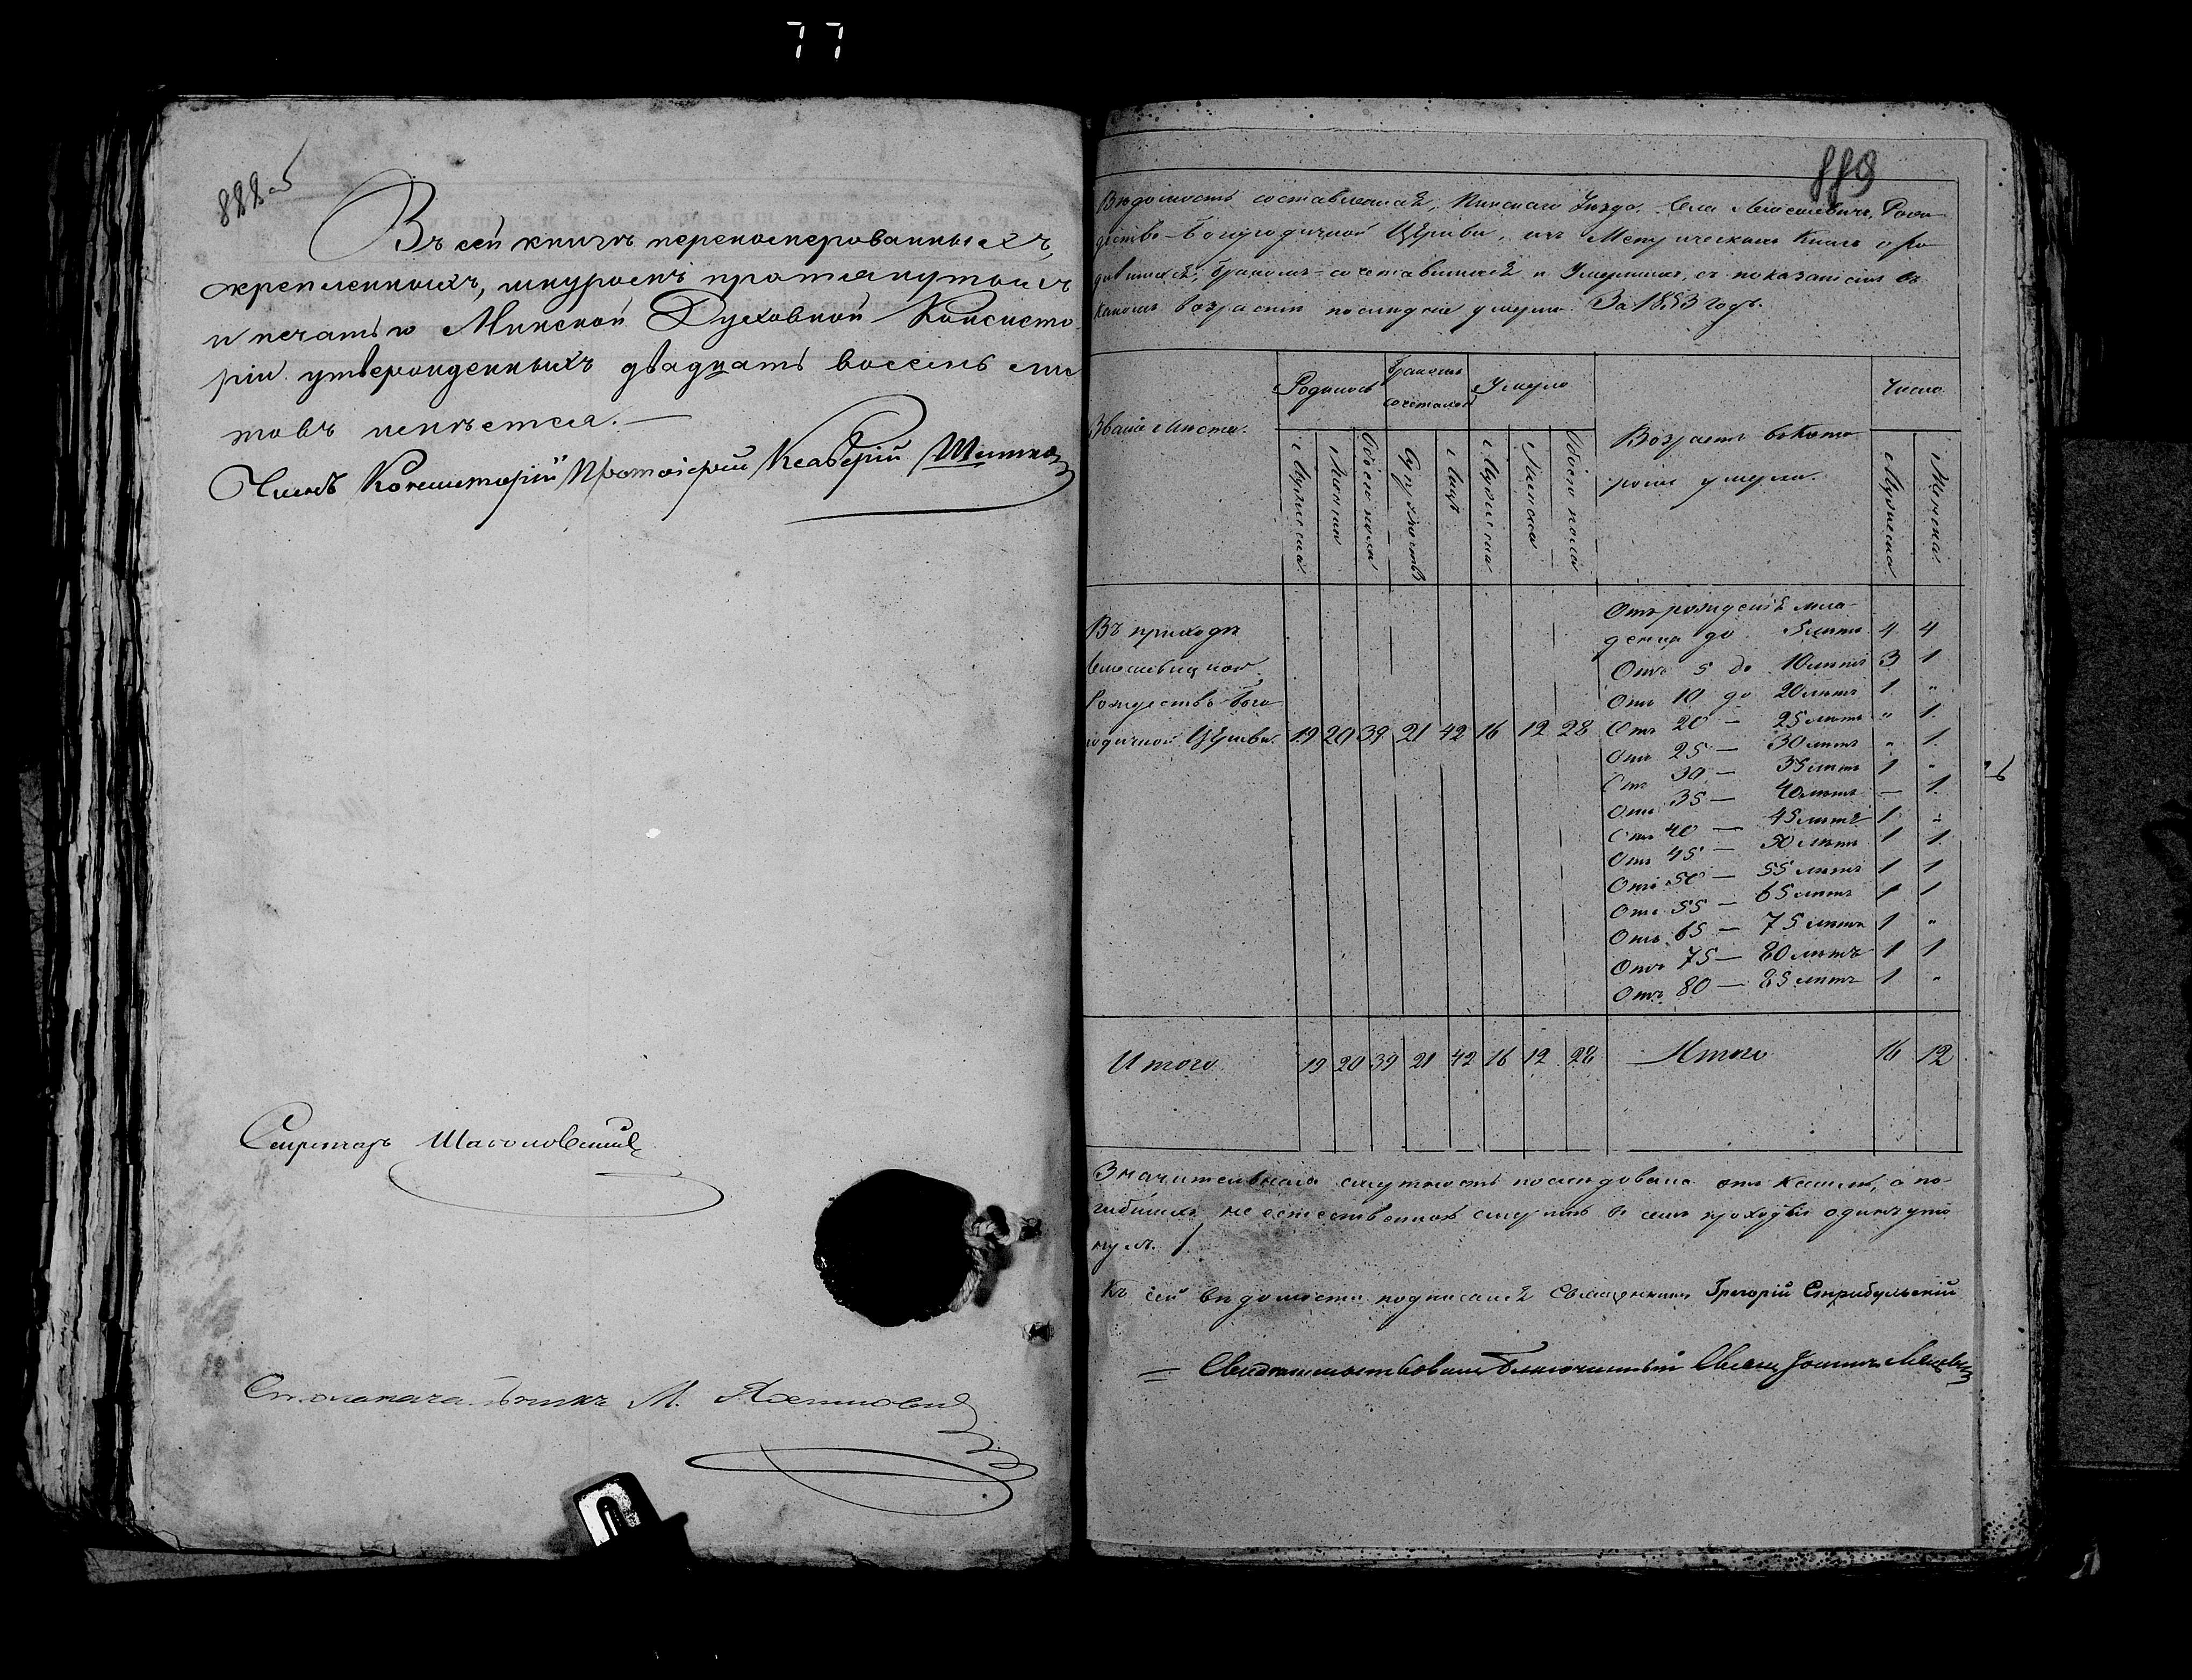 77
888 об
Въ сей книгѣ переномерованныхъ,
скрепленныхъ, шнуромъ протянутыхъ
и печатью Минской Духовной Консисто
ріи утвержденныхъ двадцать восемь лис
товъ имѣется.—
Членъ Консисторіи Протоіерей
Секретарь
Столоначальникъ М.
889
Вѣдомость составленная, Пинскаго Уѣзда, Села Рож
дество-Богородичной Церкви, изъ Метрическихъ Книгъ о ро
дившихся, бракомъ-сочетавшихся и Умершихъ, съ показаніемъ въ
какомъ возрастѣ послѣдніе умерли За 1853 годъ.
Званіе Мѣста. Родилось Бракомъ сочеталось Умерло Возрастъ въ кото Число
ромъ умерли.
Мужеска Женска Обоего пола Супружествъ Лицъ Мужеска Женска Обоего пола Мужеска Женска.
Отъ рожденія мла
Въ приходѣ денца до 5 лѣтъ 4 4
Отъ 5 до 10 лѣтъ 3 1
Рождество-Бого Отъ 10 до 20 лѣтъ 1 "
родичной Церкви. 19 20 39 21 42 16 12 28 Отъ 20 — 25 лѣтъ " 1.
Отъ 25 — 30 лѣтъ " 1.
Отъ 30 — 35 лѣтъ 1 "
Отъ 35 — 40 лѣтъ — 1.
Отъ 40 — 45 лѣтъ 1 "
Отъ 45 — 50 лѣтъ 1 1.
Отъ 50 — 55 лѣтъ 1 1
Отъ 55 — 65 лѣтъ 1 1
Отъ 65 — 75 лѣтъ 1 "
Отъ 75 — 80 лѣтъ 1 1
Отъ 80 — 85 лѣтъ 1 "
Итого 19 20 39 21 42 16 12 28 Итого 16 12
Значительная смертность послѣдовала отъ кашля, а по-
гибшихъ не естественною смертію въ семъ приходѣ одинъ уто
нулъ 1.
Къ сей вѣдомости подписался Священникъ Григорій Стрибульскій
Свидѣтельствовалъ Благочинный Священ Іоаннъ